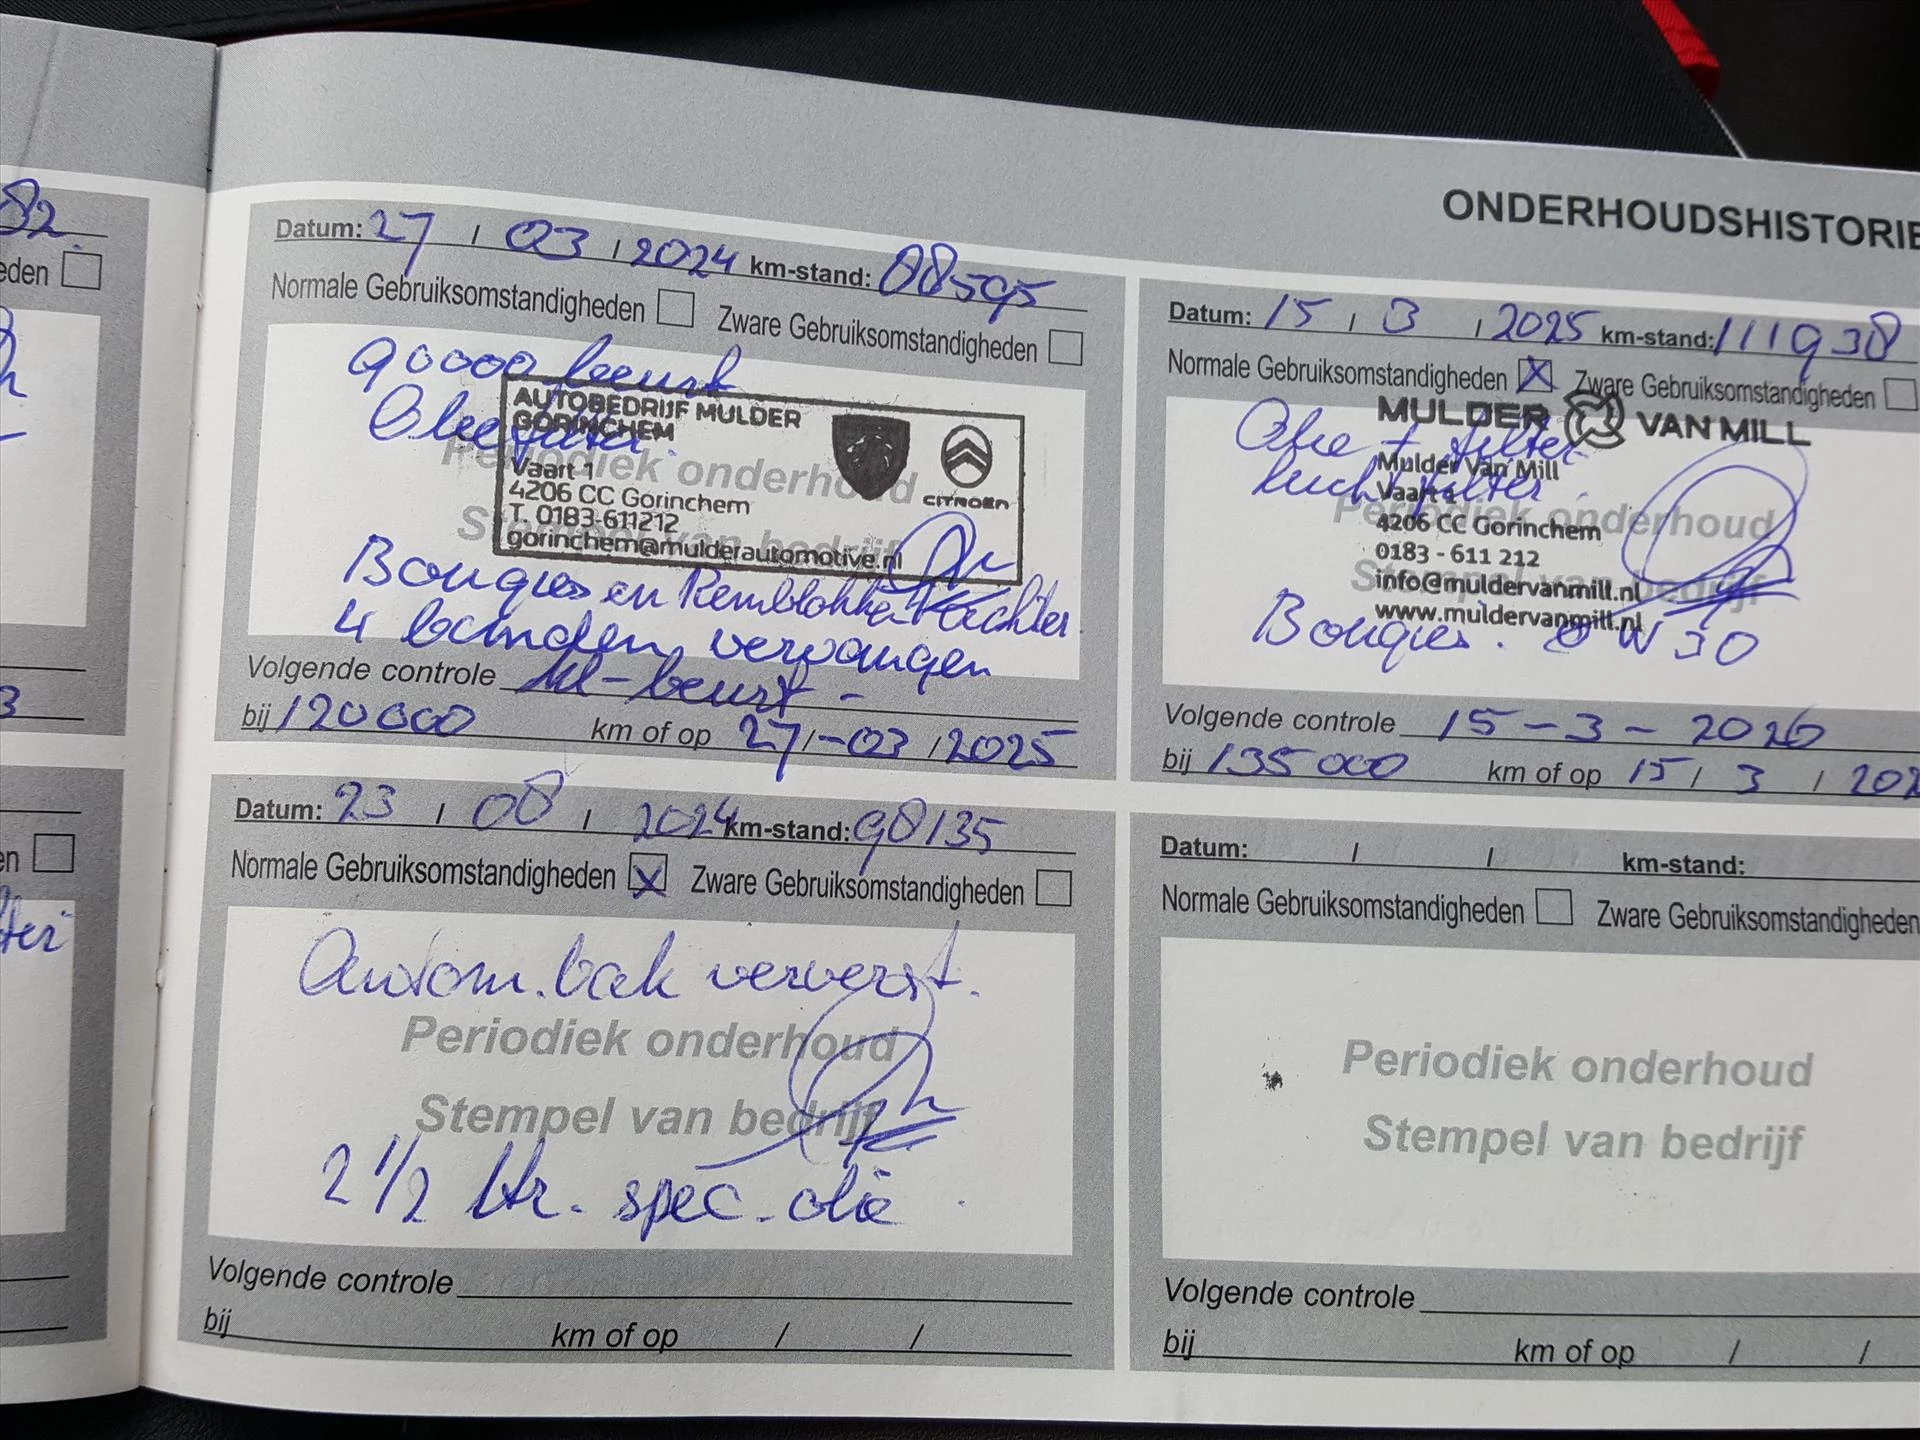 ONDERHOUDSHISTORIE
82.
eden
3
en
Datum: 27 / 03 / 2024 km-stand: 88595
Normale Gebruiksomstandigheden Zware Gebruiksomstandigheden
90000 beurt
Olie filter.
AUTOBEDRIJF MULDER
GORINCHEM
Vaart 1
4206 CC Gorinchem
T. 0183-611212
gorinchem@mulderautomotive.nl
CITROËN
Periodiek onderhoud
Stempel van bedrijf
Bougies en Remblokken achter
4 banden vervangen
Volgende controle kl-beurt -
bij 120000 km of op 27/-03/2025
Datum: 23 / 08 / 2024 km-stand: 98135
Normale Gebruiksomstandigheden X Zware Gebruiksomstandigheden
Autom. bak ververst.
Periodiek onderhoud
Stempel van bedrijf
2 1/2 ltr. spec. olie
Volgende controle
bij km of op / /
Datum: 15 / 3 / 2025 km-stand: 111938
Normale Gebruiksomstandigheden X Zware Gebruiksomstandigheden
MULDER VAN MILL
Olie + filter
Mulder Van Mill
luchtfilter
Vaart 1
Periodiek onderhoud
4206 CC Gorinchem
0183 - 611 212
Stempel van bedrijf
info@muldervanmill.nl
www.muldervanmill.nl
Bougies. 0W30
Volgende controle 15-3-2026
bij 135000 km of op 15 / 3 / 202
Datum: / / km-stand:
Normale Gebruiksomstandigheden Zware Gebruiksomstandigheden
Periodiek onderhoud
Stempel van bedrijf
Volgende controle
bij km of op / /